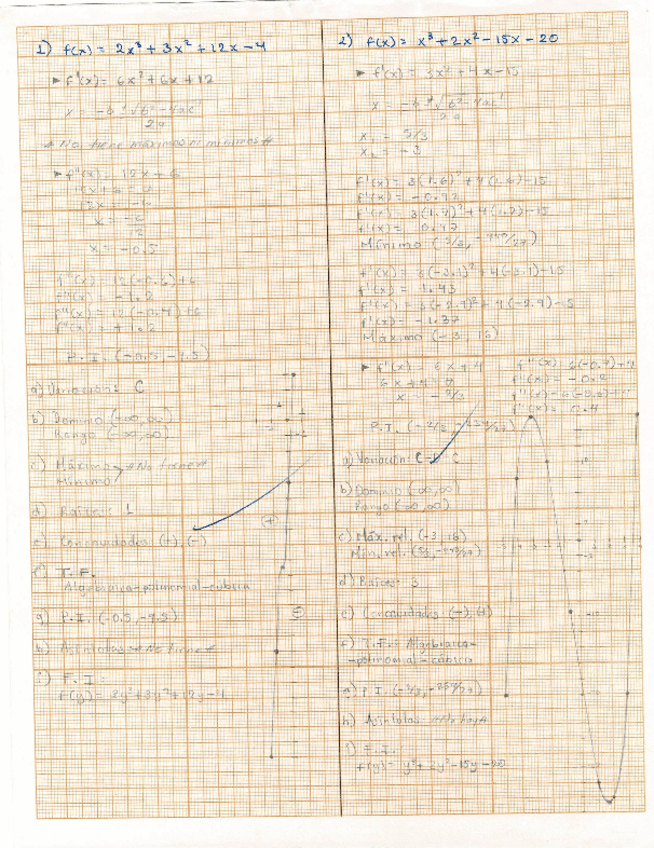 1) f(x) = 2x³ + 3x² + 12x - 4
► f'(x) = 6x² + 6x + 12
x = -b ± √b² - 4ac
2a
No tiene máximos ni mínimos
► f''(x) = 12x + 6
12x + 6 = 0
12x = -6
x = -6
12
x = -0.5
f''(x) = 12(-0.6)+6
f''(x) = -1.2
f''(x) = 12(-0.4)+6
f''(x) = +1.2
P.I. (-0.5, -9.5)
a) Variación: C
b) Dominio (-∞,∞)
Rango (-∞,∞)
c) Máximo
Mínimo
No tiene
d) Raíces: 1
e) Concavidades (+), (-)
f) T.F.
Algebraica-polinomial-cúbica
g) P.I. (-0.5, -9.5)
h) Asíntotas → No tiene
i) F.I.
f(y) = 2y³+3y²+12y-4
2) f(x) = x³ + 2x² - 15x - 20
► f'(x) = 3x² + 4x - 15
x = -b ± √b² - 4ac
2a
x₁ = 5/3
x₂ = -3
f'(x) = 3(1.6)² + 4(1.6) - 15
f'(x) = -0.92
f'(x) = 3(1.7)² + 4(1.7) - 15
f'(x) = 0.47
Mínimo (5/3,
f'(x) = 3(-3.1)² + 4(-3.1) - 15
f'(x) = 1.43
f'(x) = 3(-2.9)² + 4(-2.9) - 15
f'(x) = -1.37
Máximo (-3, 16)
► f''(x) = 6x + 4
6x + 4 = 0
x = -2/3
f''(x) = 6(-0.7)+4
f''(x) = -0.2
f''(x) = 0.4
P.I. (-2/3,
a) Variación: C-D-C
b) Dominio (-∞,∞)
Rango (-∞,∞)
c) Máx. rel. (-3, 16)
Mín. rel. (5/3,
d) Raíces: 3
e) Concavidades (-), (+)
f) T.F.: Algebraica-
-polinomial-cúbica
g) P.I. (-2/3,
h) Asíntotas → No hay
i) F.I.
f(y) = y³ + 2y² - 15y - 20